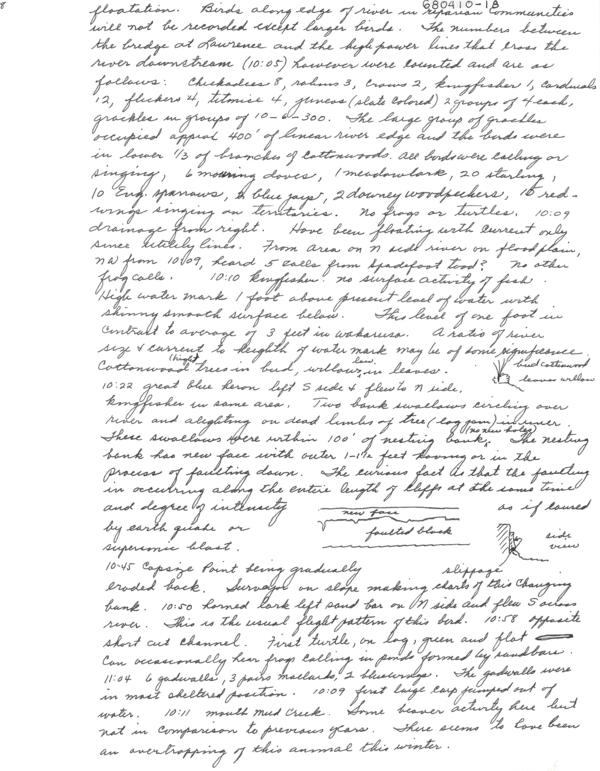 8
680410-1B
floatation. Birds along edge of river in riparian communities
will not be recorded except larger birds. The numbers between
the bridge at Lawrence and the high power lines that cross the
river downstream (10:05) however were counted and are as
follows: Chickadees 8, robins 3, crows 2, kingfisher 1, cardinals
12, flickers 4, titmice 4, juncos (slate colored) 2 groups of 4 each,
grackles in groups of 10-0-300. The large group of grackles
occupied approx 400' of linear river edge and the birds were
in lower 1/3 of branches of cottonwoods. All birds were calling or
singing, 6 mourning doves, 1 meadowlark, 20 starling,
10 Eng. sparrows, 2 blue jays, 2 downey woodpeckers, 15 red-
wings singing on territories. No frogs or turtles. 10:09
drainage from right. Have been floating with current only
since utility lines. From area on N side river on floodplain,
NW from 10:09, heard 5 calls from spadefoot toad? No other
frog calls. 10:10 kingfisher. no surface activity of fish.
High water mark 1 foot above present level of water with
skinny smooth surface below. This level of one foot in
contrast to average of 3 feet in wakarusa. A ratio of river
size & current to heighth of water mark may be of some significance.
Cottonwood (high) trees in bud, willows, low, in leaves.
bud cottonwood
leaves willow
10:22 great blue heron left S side & flew to N side.
kingfisher in same area. Two bank swallows circling over
river and alighting on dead limbs of tree (log jam) in river.
These swallows were within 100' of nesting bank (no new holes). The nesting
bank has new face with outer 1-1½ feet having or in the
process of faulting down. The curious fact is that the faulting
in occurring along the entire length of cliffs at the same time
and degree of intensity as if caused
by earth quake or
supersonic blast.
new face
faulted block
side
view
slippage
10:45 Capsize Point being gradually
eroded back. Surveyor on slope making charts of this changing
bank. 10:50 horned lark left sand bar on N side and flew S across
river. This is the usual flight pattern of this bird. 10:58 opposite
short cut channel. First turtle, on log, green and flat
Can occasionally hear frogs calling in ponds formed by sandbars.
11:04 6 gadwalls, 3 pairs mallards, 2 bluewings. The gadwalls were
in most sheltered position. 10:09 first large carp jumped out of
water. 10:11 mouth Mud Creek. Some beaver activity here but
not in comparison to previous years. There seems to have been
an overtrapping of this animal this winter.